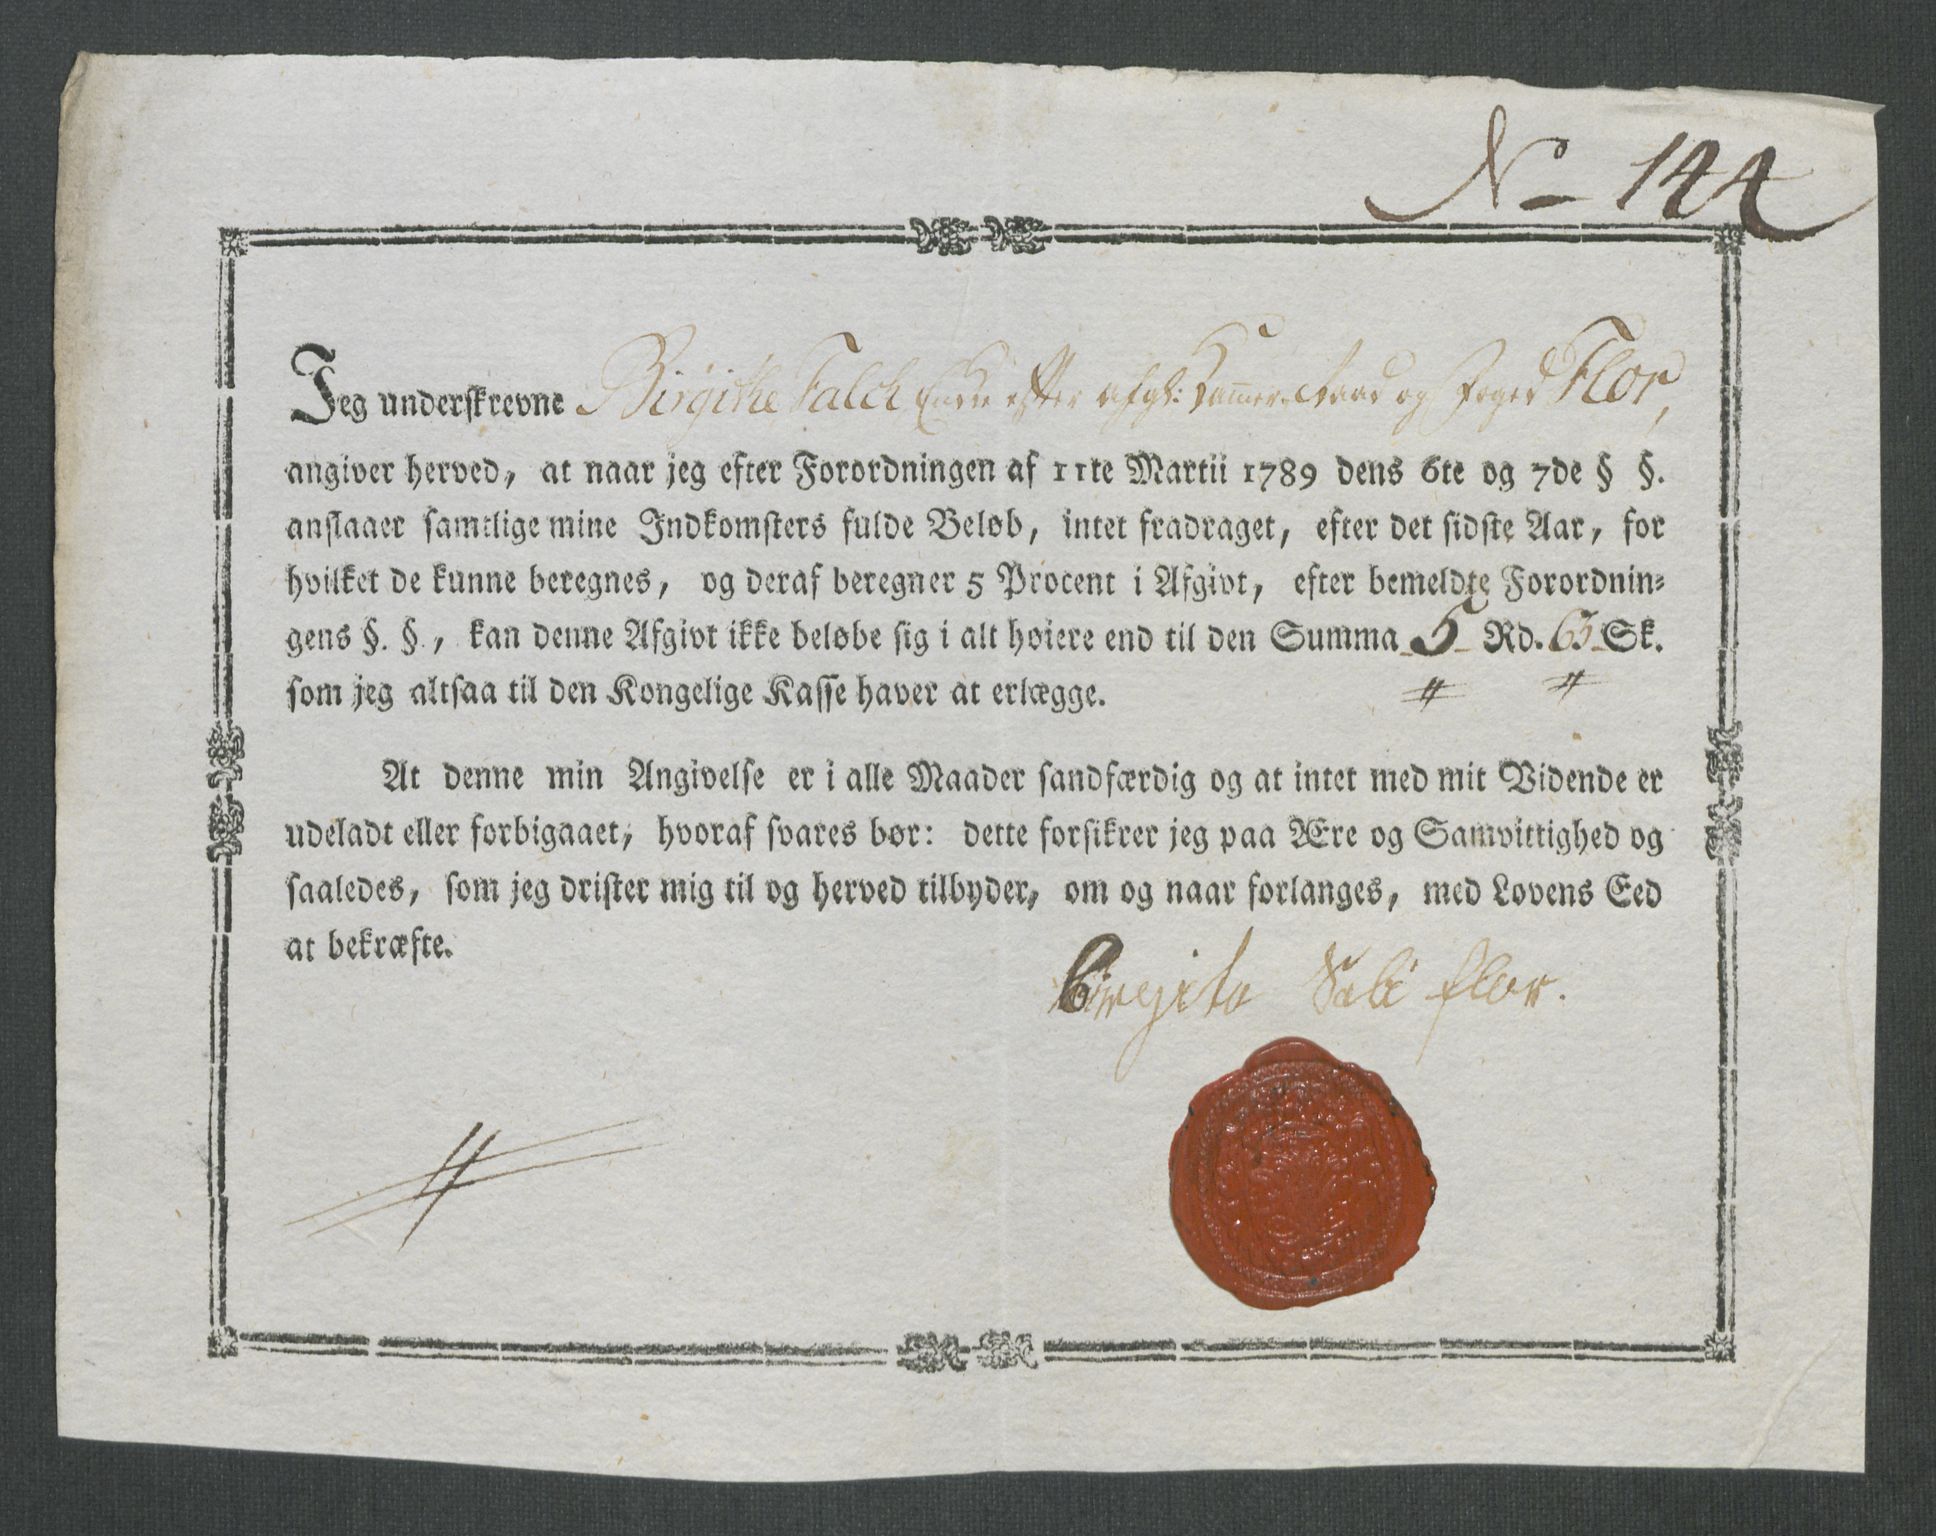 No 144
Jeg underskrevne Birgithe Falch Enke efter afg: Kammer-Raad og Foged Flor,
angiver herved, at naar jeg efter Forordningen af 11te Martii 1789 dens 6te og 7de § §.
anslaaer samtlige mine Indkomsters fulde Beløb, intet fradraget, efter det sidste Aar, for
hvilket de kunne beregnes, og deraf beregner 5 Procent i Afgivt, efter bemeldte Forordnin-
gens §. §., kan denne Afgivt ikke beløbe sig i alt høiere end til den Summa 5 Rd. 63 Sk.
som jeg altsaa til den Kongelige Kasse haver at erlægge.
At denne min Angivelse er i alle Maader sandfærdig og at intet med mit Vidende er
udeladt eller forbigaaet, hvoraf svares bør: dette forsikrer jeg paa Ære og Samvittighed og
saaledes, som jeg drister mig til og herved tilbyder, om og naar forlanges, med Lovens Eed
at bekræfte.
Birgita Sali flor.